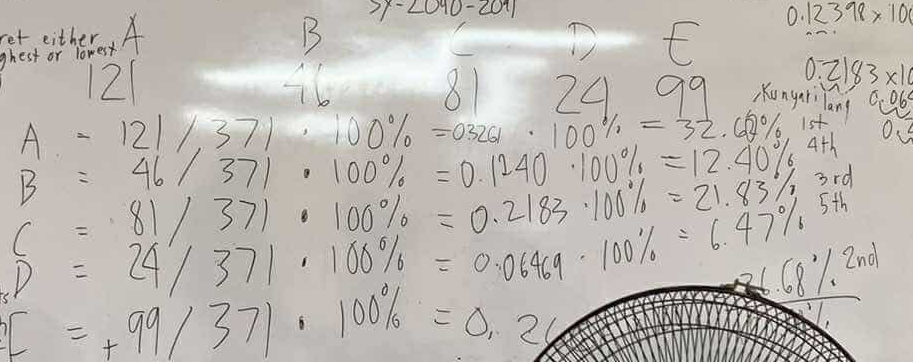 SY-2040-2041
0.12398 x 100
ret either
ghest or lowest
A B C D E
121 46 81 24 99
0.2183 x10
Kunyari lang
A = 121 / 371 . 100% = 03261 . 100% = 32.60% 1st
B = 46 / 371 . 100% = 0.1240 . 100% = 12.40% 4th
C = 81 / 371 . 100% = 0.2183 . 100% = 21.83% 3rd
D = 24 / 371 . 100% = 0.06469 . 100% = 6.47% 5th
E = + 99 / 371 . 100% = 0.26
26.68% 2nd